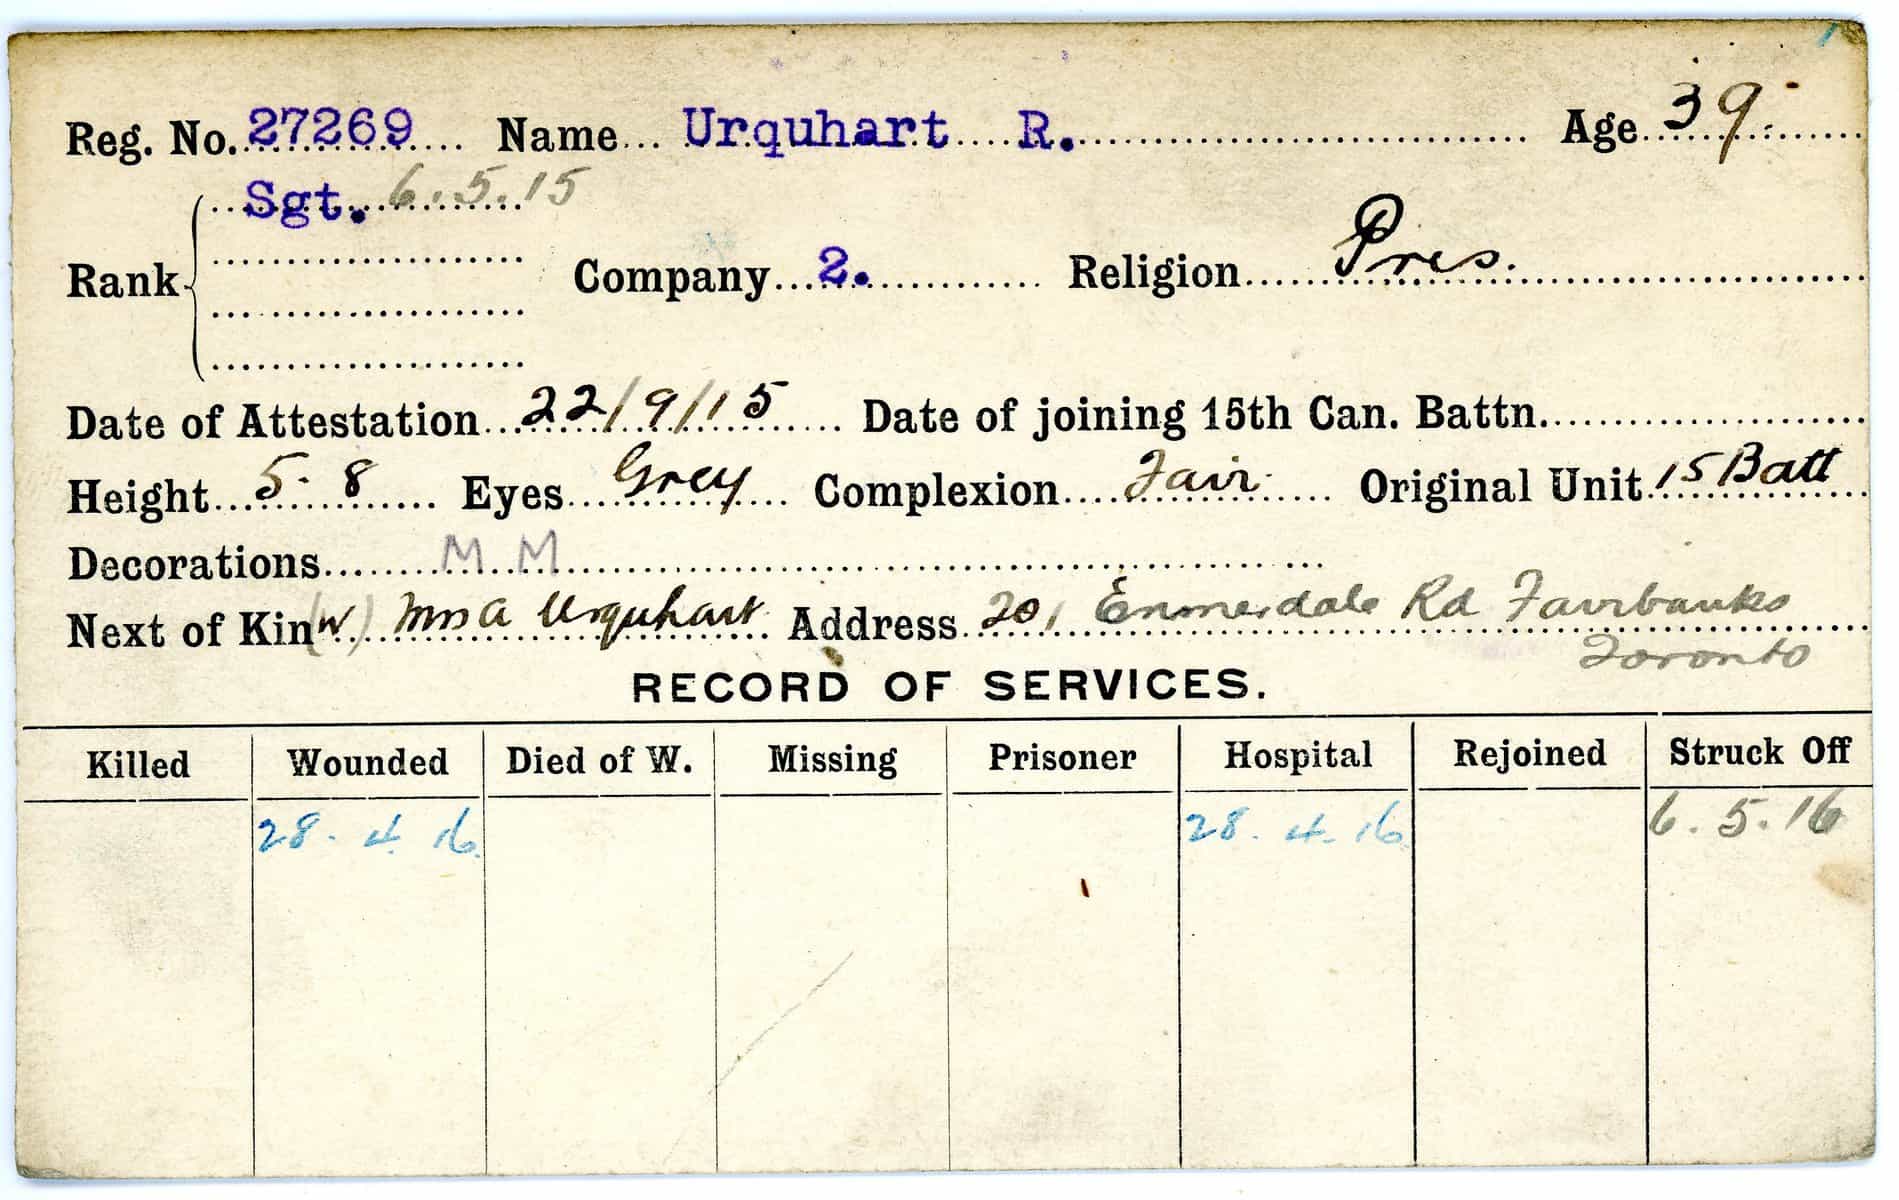 Reg. No. 27269 Name Urquhart R. Age 39
Sgt. 6.5.15
Rank Company 2. Religion Pres.
Date of Attestation 22/9/15 Date of joining 15th Can. Battn.
Height 5-8 Eyes Grey Complexion Fair Original Unit 15 Batt
Decorations M.M
Next of Kin (W) Mrs A Urquhart Address 201 Emmerdale Rd Fairbanks
Toronto
RECORD OF SERVICES.
Killed Wounded Died of W. Missing Prisoner Hospital Rejoined Struck Off
28. 4. 16. 28. 4. 16. 6. 5. 16